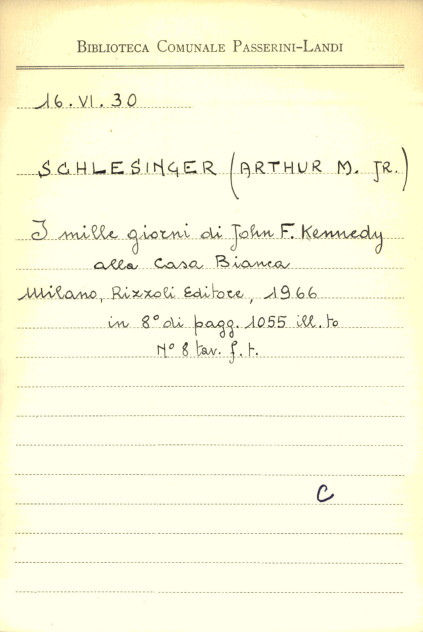 BIBLIOTECA COMUNALE PASSERINI-LANDI
16.VI.30
SCHLESINGER (ARTHUR M. JR.)
I mille giorni di John F. Kennedy
alla Casa Bianca
Milano, Rizzoli Editore, 1966
in 8° di pagg. 1055 ill.to
N° 8 tav. f.t.
C